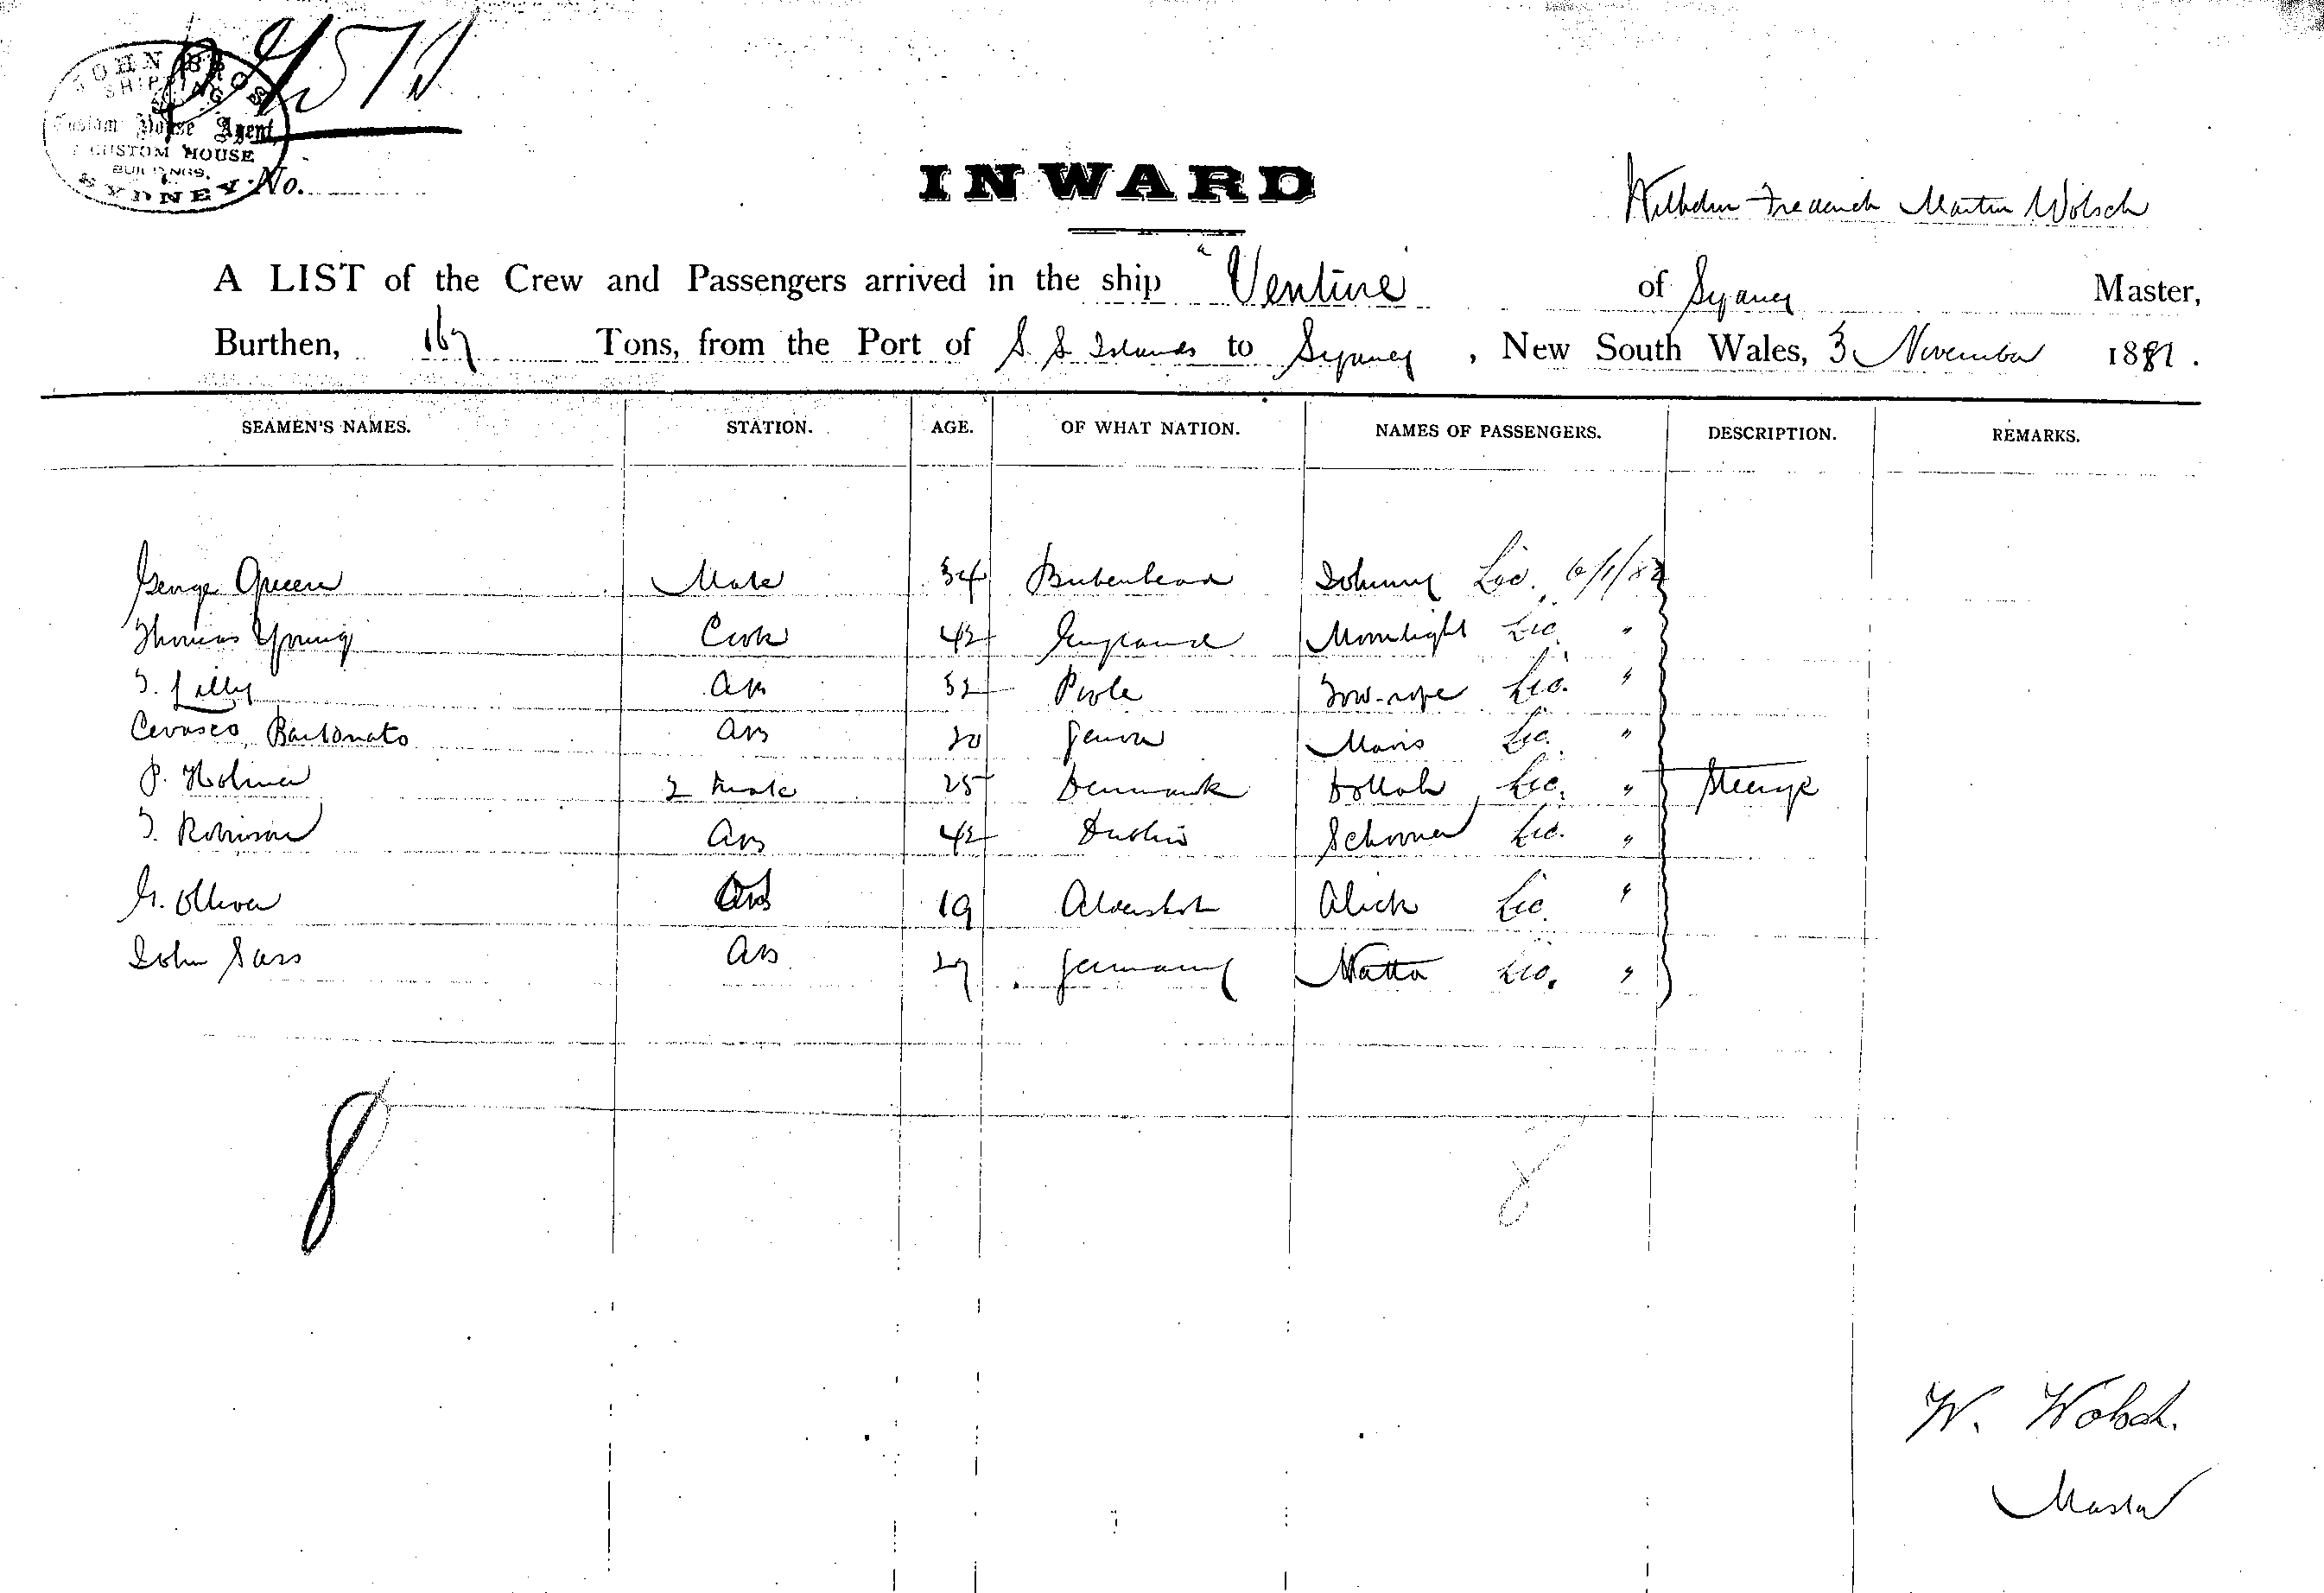 JOHN BROS
SHIPPING
Custom House Agent,
CUSTOM HOUSE
BUILDINGS,
SYDNEY.
No.
INWARD
Wilhelm Frederick Martin Wolsch
A LIST of the Crew and Passengers arrived in the ship "Venture" of Sydney Master,
Burthen, 167 Tons, from the Port of S. S. Islands to Sydney, New South Wales, 3 November 1881.
SEAMEN'S NAMES. STATION. AGE. OF WHAT NATION. NAMES OF PASSENGERS. DESCRIPTION. REMARKS.
George Green Mate 34 Birkenhead Johnny Lic. 6/1/82
Thomas Young Cook 42 England Moonlight Lic. "
T. Lilly AB 32 Poole Tow-rope Lic. "
Cevasco Bartonato AB 20 Genoa Lic. "
P. Holmer 2 Mate 25 Denmark Lic. " Steerage
T. Robinson AB 42 Dublin Schooner Lic. "
G. Olliver 19 Aldershot Alick Lic. "
John Sass AB 27 Germany Natta Lic. "
8 8
W. Wolsch.
Master